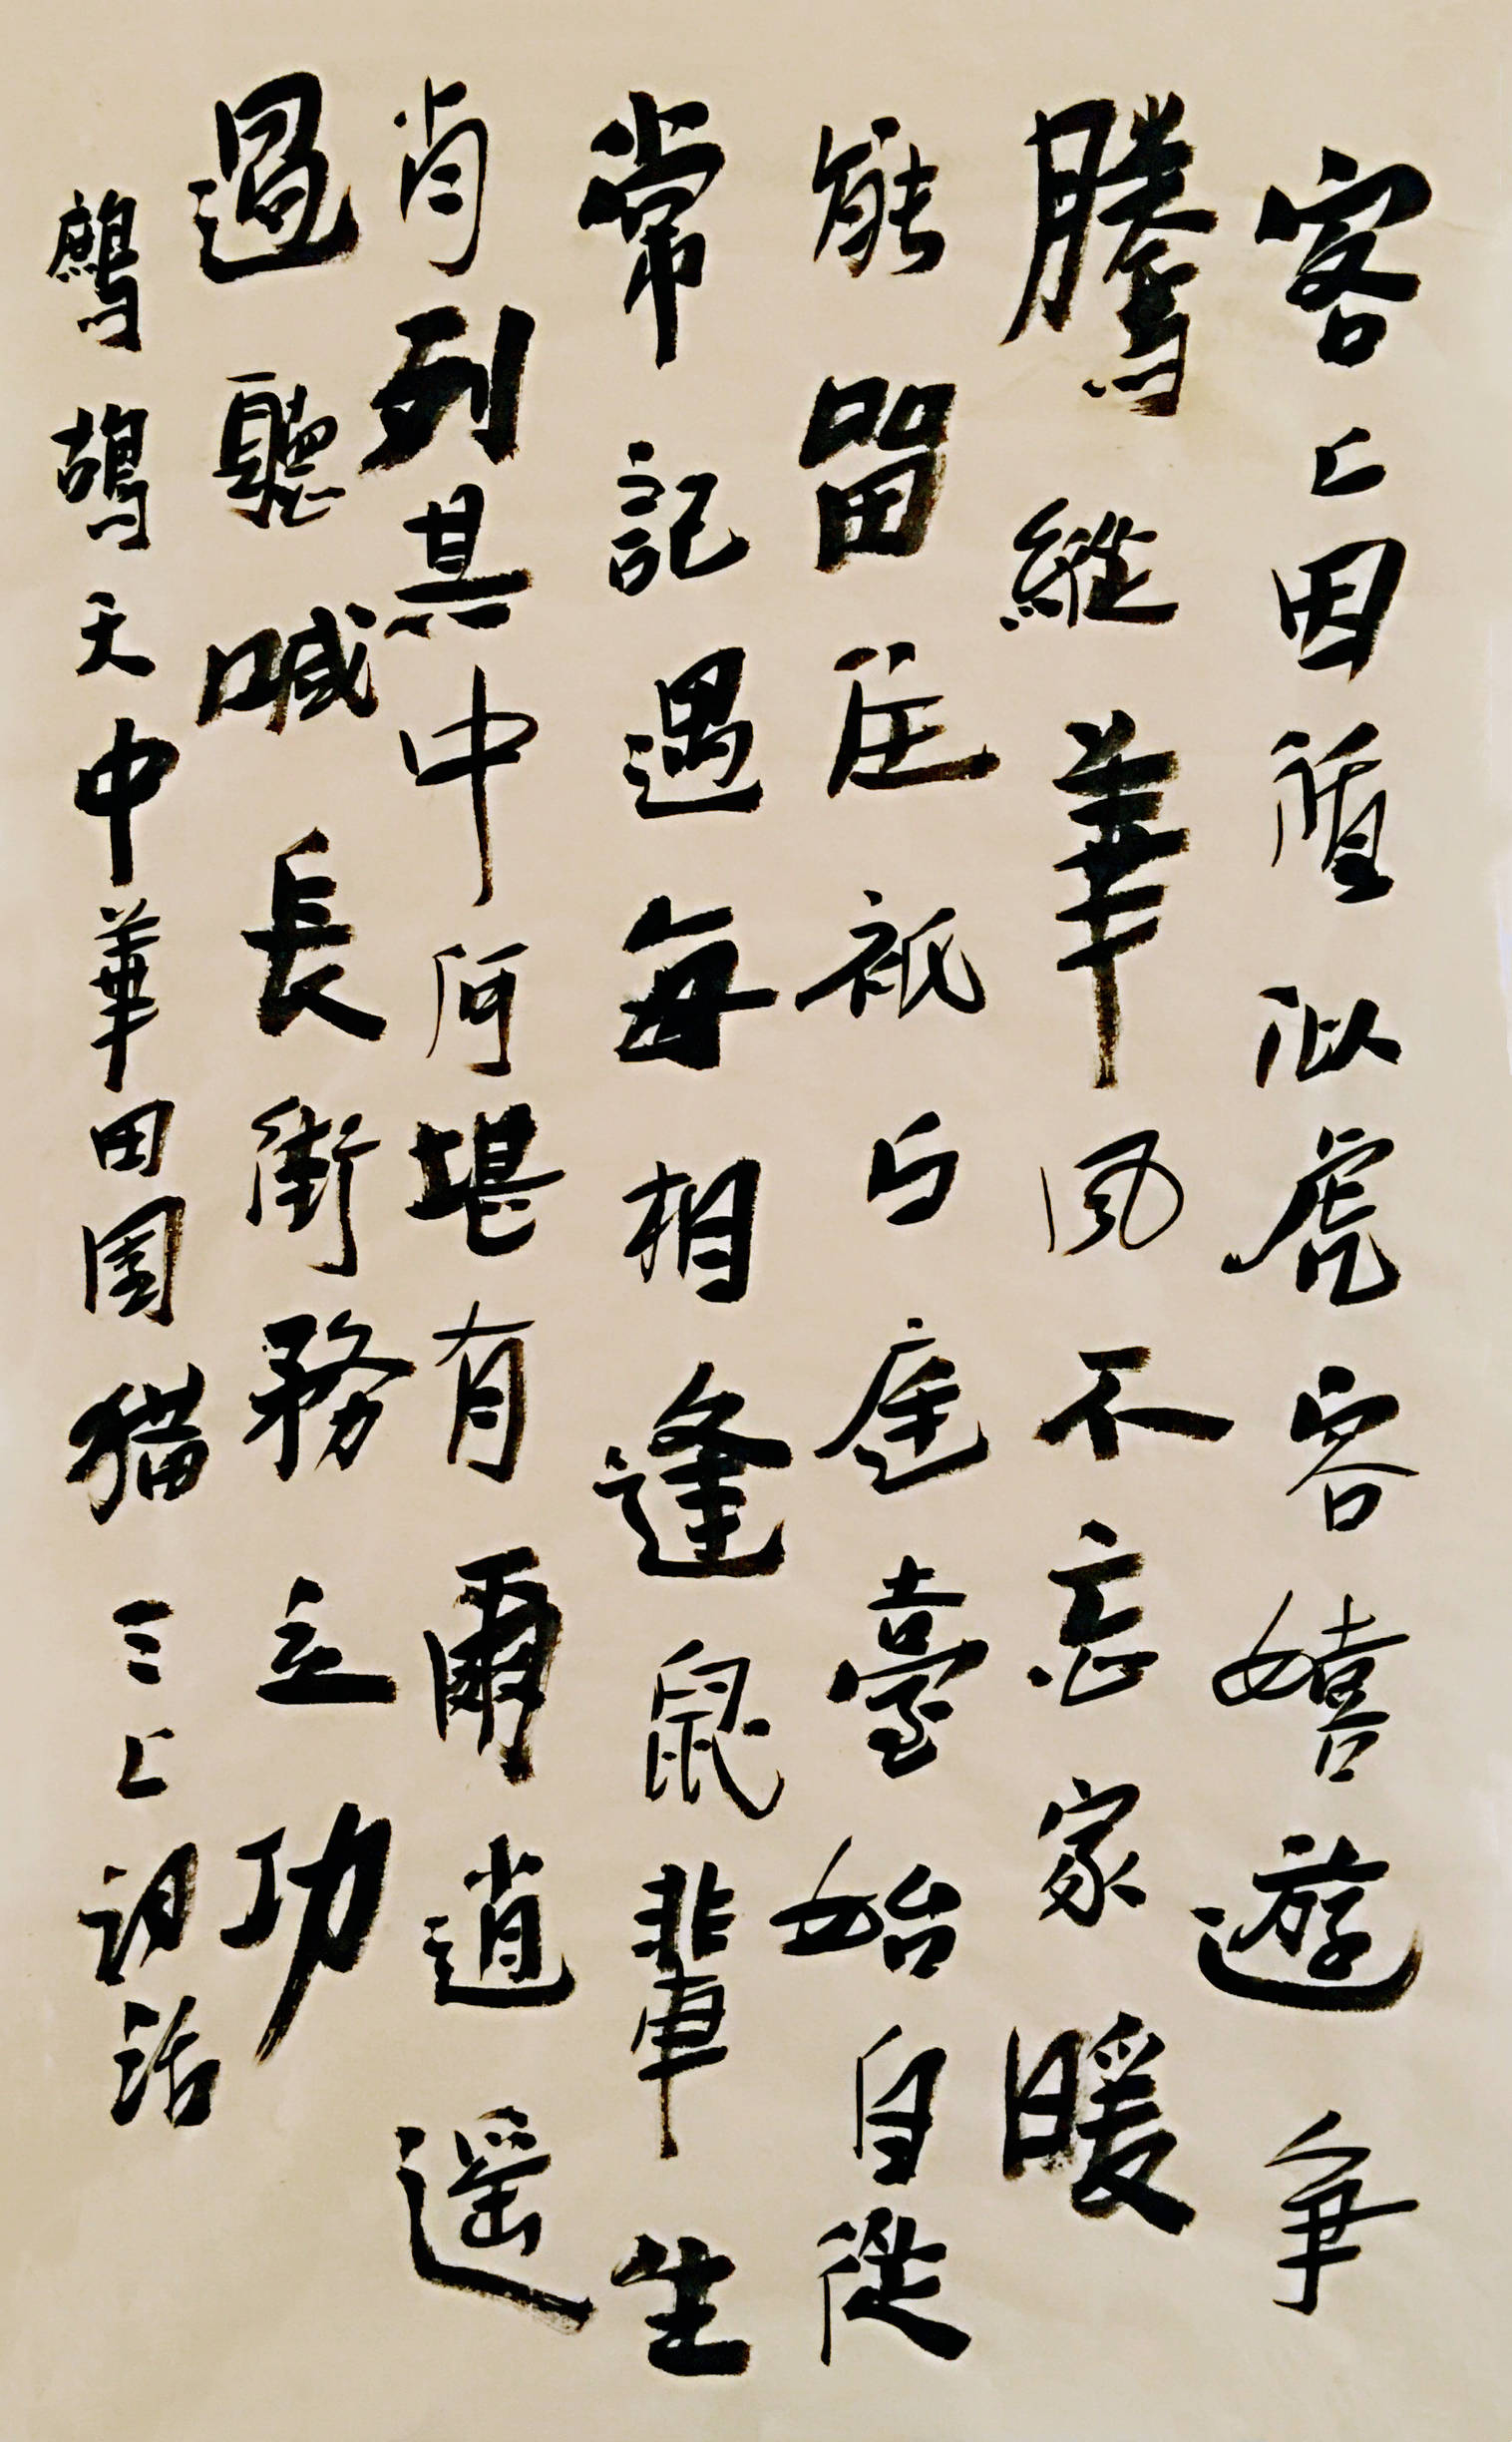 客上因循似虎容嬉遊争
騰縱華風不忘家暖
能留住祇
庭臺始自從
常記遇每相逢鼠輩生
肖列其中何堪有爾逍遥
過聽喊長街務立功
鷓鴣天中華田園貓三上词话